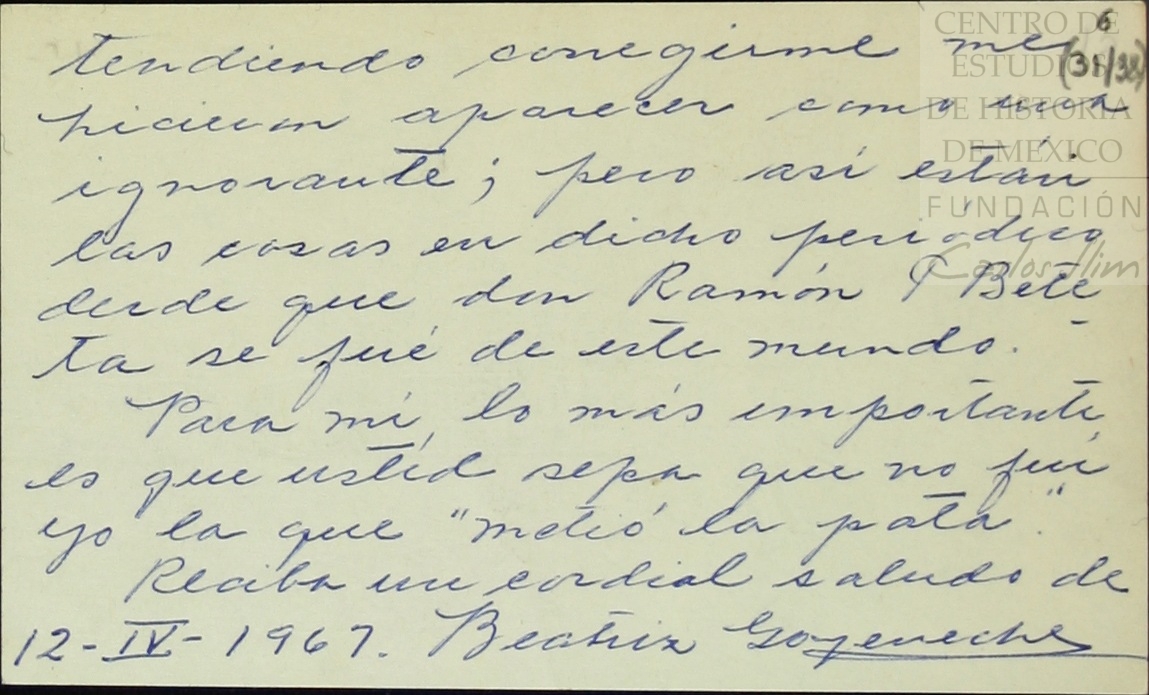 CENTRO DE
ESTUDIOS
DE HISTORIA
DE MÉXICO
FUNDACIÓN
Carlos Slim
6
(31/38)
tendiendo corregirme me
hicieron aparecer como una
ignorante; pero así están
las cosas en dicho periódico
desde que don Ramón P Bete
ta se fué de este mundo.
Para mí, lo más importante,
es que usted sepa que no fui
yo la que "metió la pata".
Reciba un cordial saludo de
12-IV-1967. Beatriz Goyeneche